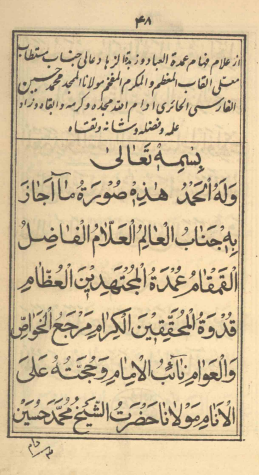 ۴۸
از علام فهام عمدة العباد وزبدة الزهاد عالی جناب مستطاب
معلی القاب المعظم والمکرم المفخم مولانا الممجد محمد حسین
الفارسی الحائری ادام الله مجده وکرمه وابقاه وزاد
علمه وفضله وشانه وتقاه
بِسْمِهٖ تَعَالٰی
وَلَهُ الْحَمْدُ هٰذِهٖ صُوْرَةُ مَا اَجَازَ
بِهٖ جَنَابُ الْعَالِمُ الْعَلَّامُ الْفَاضِلُ
الْقَمْقَامُ عُمْدَةُ الْمُجْتَهِدِیْنَ الْعِظَامِ
قُدْوَةُ الْمُحَقِّقِیْنَ الْکِرَامِ مَرْجَعُ الْخَوَاصِّ
وَالْعَوَامِ نَائِبُ الْاِمَامِ وَحُجَّتُهٗ عَلَی
الْاَنَامِ مَوْلَانَا حَضْرَتُ الشَّیْخِ مُحَمَّدْ حُسَیْنْ